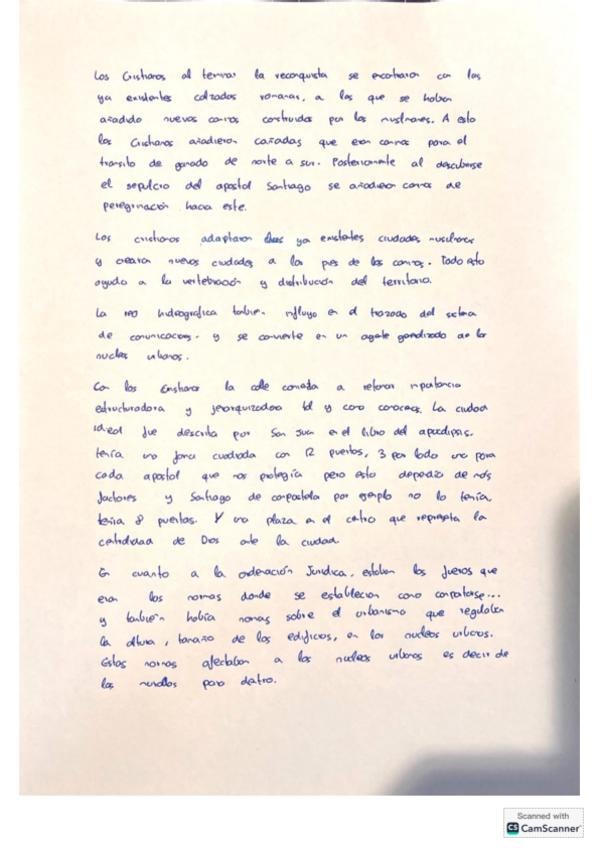 Los Cristianos al terminar la reconquista se encontraron con las
ya existentes calzadas romanas, a las que se habian
añadido nuevos caminos construidos por los musulmanes. A esto
los Cristianos añadieron cañadas que eran caminos para el
transito de ganado de norte a sur. Posteriormente al descubrirse
el sepulcro del apostol Santiago se añadieron caminos de
peregrinación hacia este.
Los cristianos adaptaron ya existentes ciudades musulmanas
y crearon nuevas ciudades a los pies de los caminos. Todo esto
ayudo a la vertebración y distribución del territorio.
La red hidrografica tambien influyo en el trazado del sistema
de comunicaciones y se convierte en un agente de los
nucleos urbanos.
Con los Cristianos la calle comienza a retomar importancia
estructuradora y jerarquizadora tal y como conocemos. La ciudad
ideal fue descrita por San Juan en el libro del apocalipsis,
tenía una forma cuadrada con 12 puertas, 3 por lado una para
cada apostol que nos protegía pero esto dependía de más
factores y Santiago de compostela por ejemplo no lo tenía,
tenía 8 puertas. Y una plaza en el centro que representa la
de Dios ante la ciudad.
En cuanto a la ordenación Jurídica, estaban los fueros que
eran las normas donde se establecian como comportarse...
y también había normas sobre el urbanismo que regulaban
la altura, tamaño de los edificios, en los nucleos urbanos.
Estas normas afectaban a los nucleos urbanos es decir de
las murallas para dentro.
Scanned with
CS CamScanner